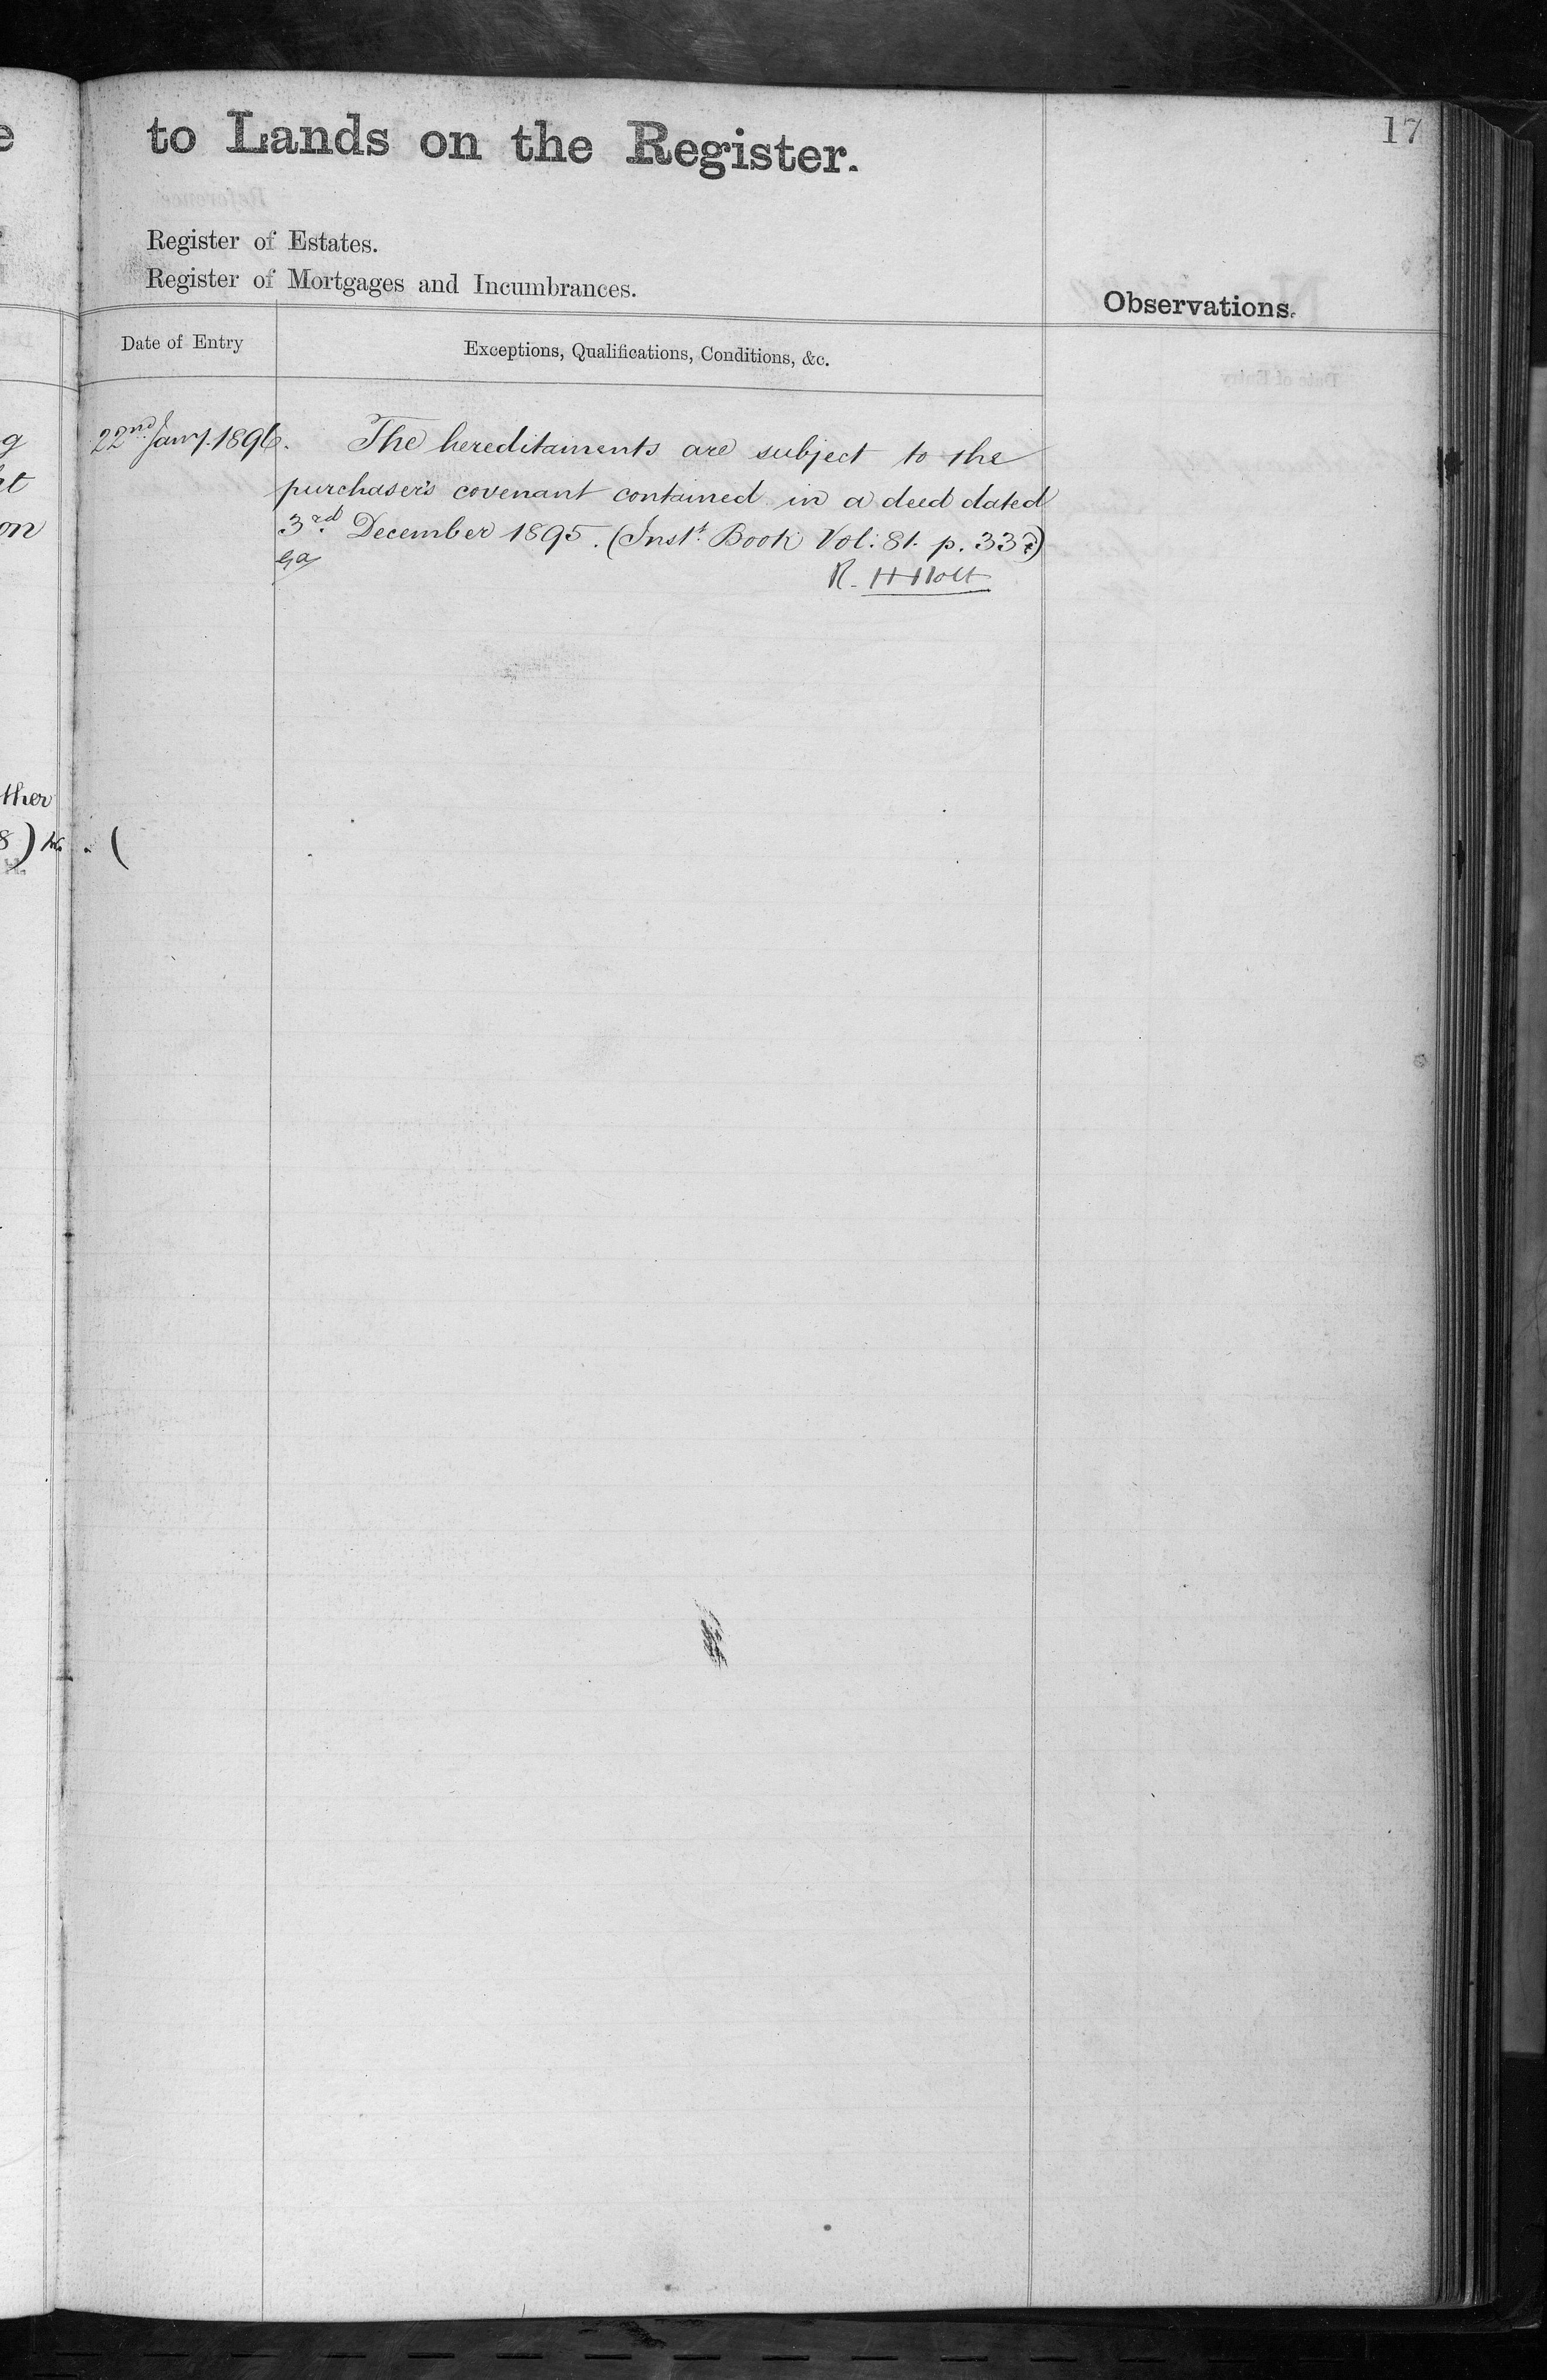 17
to Lands on the Register.
Register of Estates.
Register of Mortgages and Incumbrances.
Observations.
Date of Entry
Exceptions, Qualifications, Conditions, &c.
22nd Jany. 1896. The hereditaments are subject to the
purchaser's covenant contained in a deed dated
3rd December 1895. (Inst. Book Vol: 81. p. 337)
R. H Holt
g
on
ther
8)
(